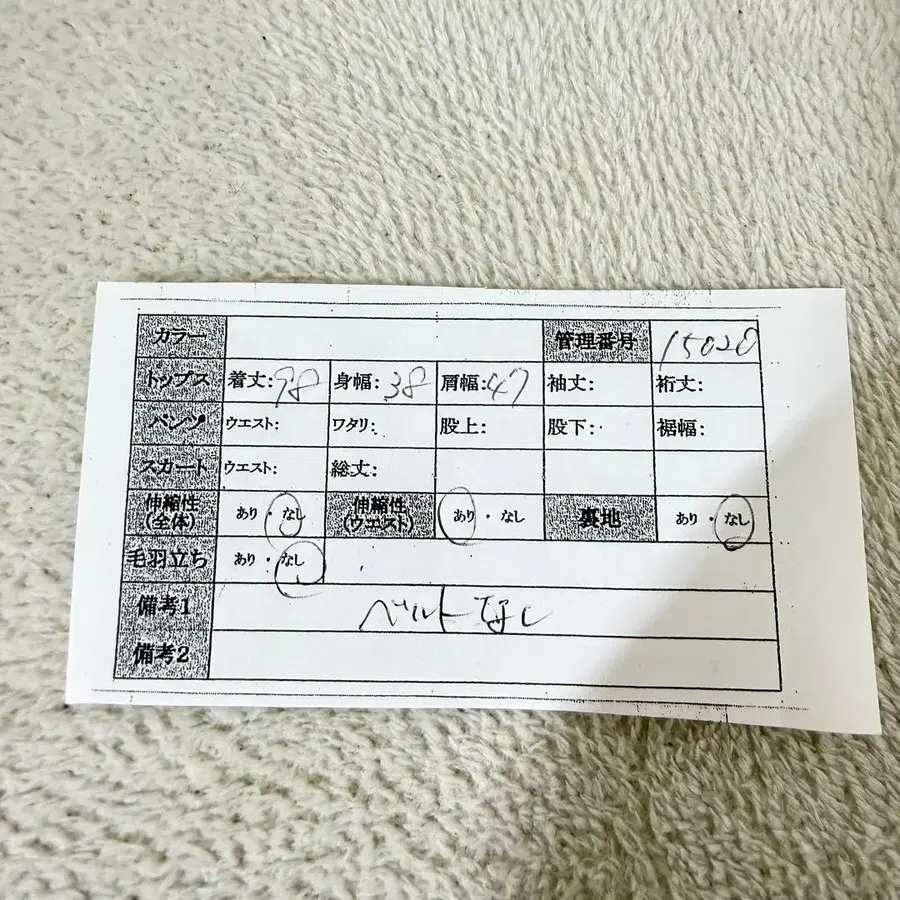 カラー 管理番号 15020
トップス 着丈:98 身幅:38 肩幅:47 袖丈: 裄丈:
パンツ ウエスト: ワタリ: 股上: 股下: 裾幅:
スカート ウエスト: 総丈:
伸縮性(全体) あり・なし 伸縮性(ウエスト) あり・なし 裏地 あり・なし
毛羽立ち あり・なし
備考1 ベルトなし
備考2